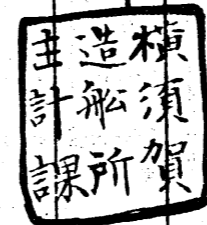 横須賀
造船所
主計課